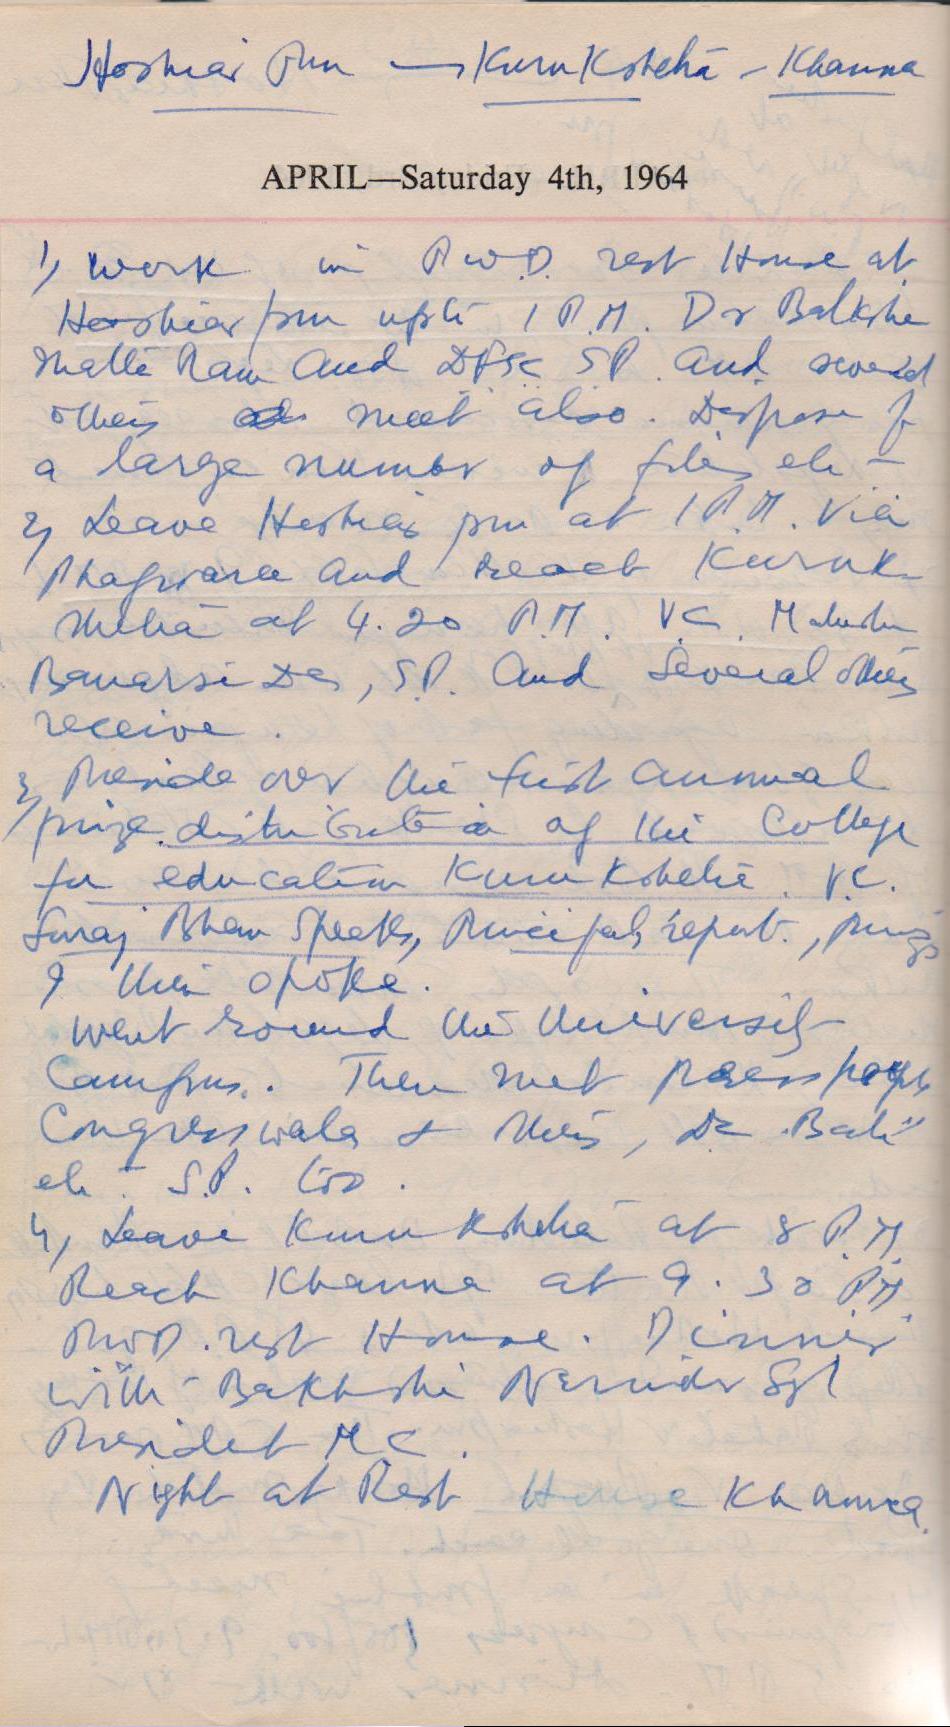 Hoshiar Pur → Kurukshetra - Khanna
APRIL—Saturday 4th, 1964
1) Work in P.W.D. rest House at
Hoshiar pur upto 1 P.M. Dr
Ram and SP. and several
others meet also. Dispose of
a large number of files etc -
2) Leave Hoshiar pur at 1 P.M. via
Phagwara and reach Kuruk-
shetra at 4.20 P.M. V.C.
Banarsi Das, S.P. and Several others
receive.
3) Preside over the first annual
prize distribution of the College
for education Kurukshetra. V.C.
Suraj Bhan Speaks, Principal's report.,
I then spoke.
Went round the University
Campus. Then met press people
Congresswalas & others, Dr
etc. S.P. too.
4) Leave Kurukshetra at 8 P.M.
Reach Khanna at 9.30 P.M.
PWD. rest House. Dinner
with Bakhshi
President M.C.
Night at Rest House Khanna.